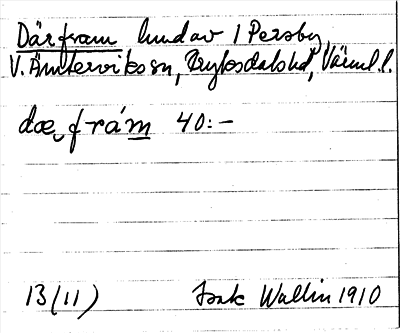 Därfram lund av 1 Persby,
V. Ämterviks sn, Fryksdals hd, Värml. l.
dæ, frám 40:-
13(11) Isak Wallin 1910